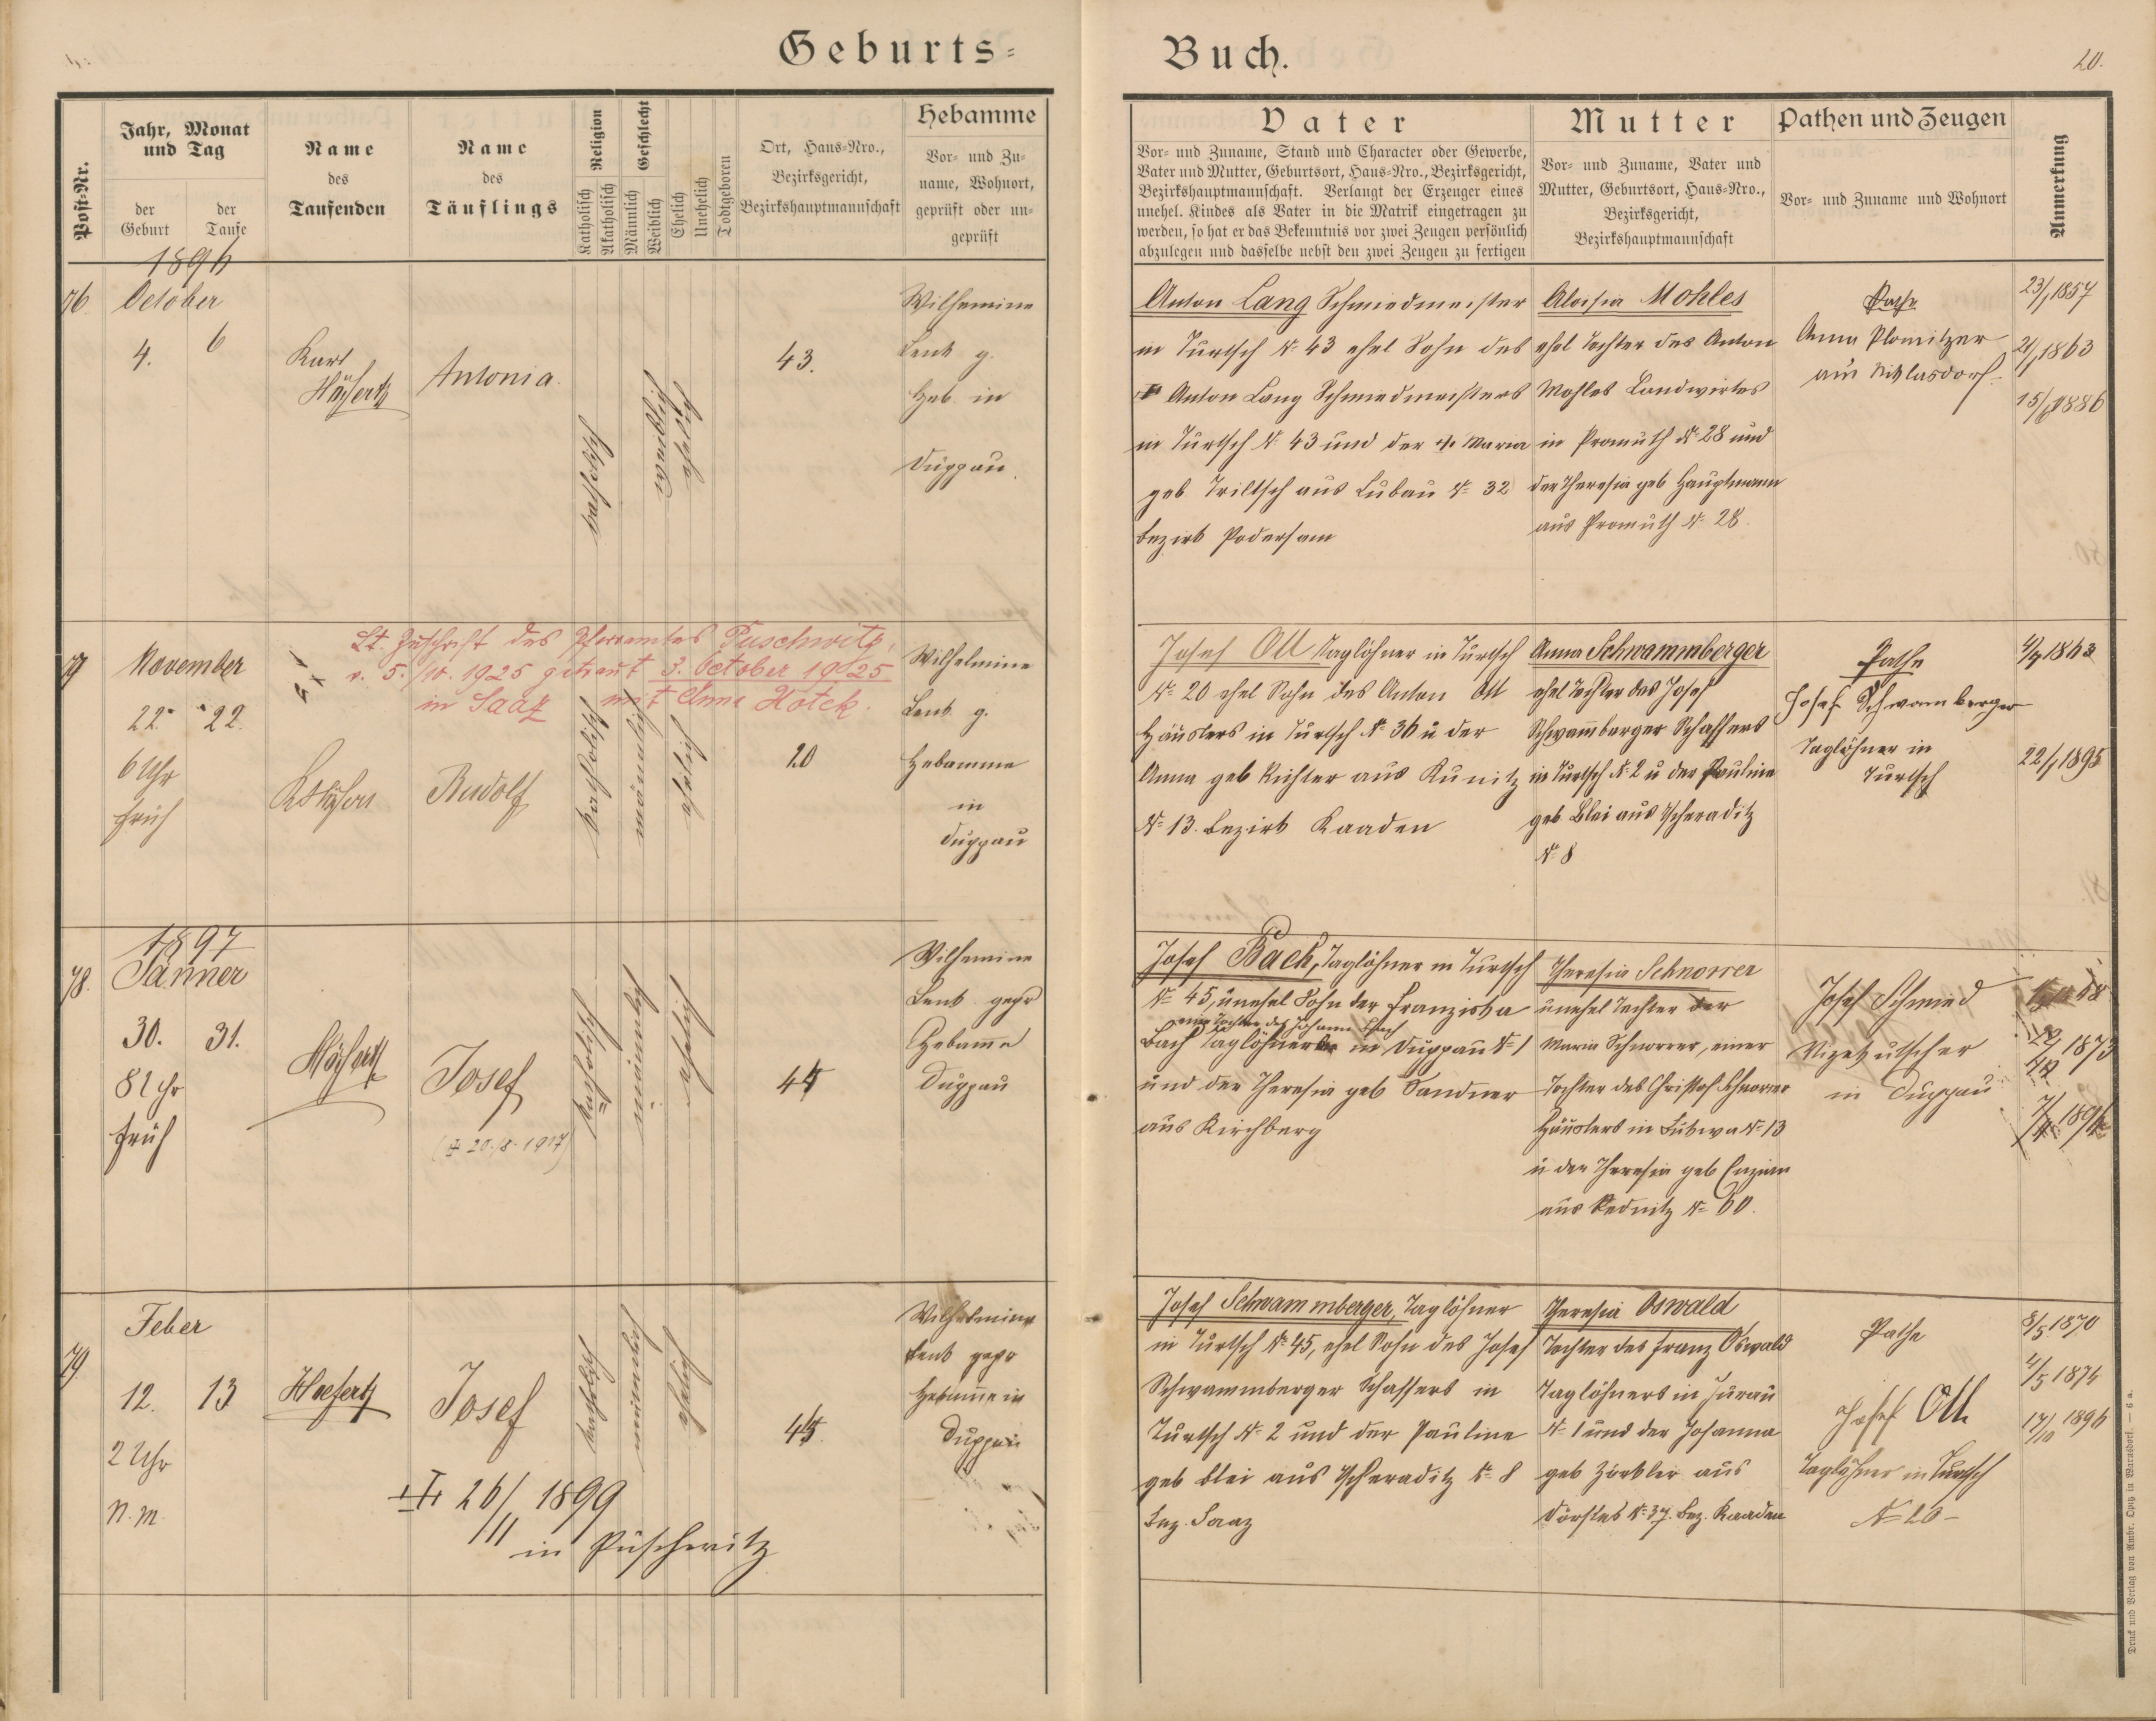 Geburts=
Buch.
20.
Post-Nr.
Jahr, Monat
und Tag
der
Geburt
der
Taufe
Name
des
Taufenden
Name
des
Täuflings
Religion
Katholisch
Akatholisch
Geschlecht
Männlich
Weiblich
Ehelich
Unehelich
Todtgeboren
Ort, Haus-Nro.,
Bezirksgericht,
Bezirkshauptmannschaft
Hebamme
Vor- und Zu-
name, Wohnort,
geprüft oder un-
geprüft
Vater
Vor- und Zuname, Stand und Character oder Gewerbe,
Vater und Mutter, Geburtsort, Haus-Nro., Bezirksgericht,
Bezirkshauptmannschaft. Verlangt der Erzeuger eines
unehel. Kindes als Vater in die Matrik eingetragen zu
werden, so hat er das Bekenntnis vor zwei Zeugen persönlich
abzulegen und dasselbe nebst den zwei Zeugen zu fertigen
Mutter
Vor- und Zuname, Vater und
Mutter, Geburtsort, Haus-Nro.,
Bezirksgericht,
Bezirkshauptmannschaft
Pathen und Zeugen
Vor- und Zuname und Wohnort
Anmerkung
1896
76.
October
4.
6
Karl
Antonia.
katholisch
weiblich
ehelich
43.
Wilhemine
Lenk g.
Heb. in
Duppau.
Anton Lang Schmiedmeister
in Turtsch N. 43 ehel Sohn des
Anton Lang Schmiedmeisters
in Turtsch N. 43 und der Maria
geb. Triltsch aus Lubau N. 32
Bezirk Podersam
Aloisia Mohles
ehel Tochter des Anton
Mohles Landwirtes
in Promuth N. 28 und
der Theresia geb Hauptmann
aus Promuth N. 28.
Pathe
Anna Plomitzer
aus Niklasdorf
23/1 1857
21/1 1863
1886
77
November
22.
22.
6 Uhr
früh
Lt. Zuschrift des Pfarramtes Puschwitz,
v. 5./10. 1925 getraut 3. October 1925
in Saaz mit Anna Hotek.
Rudolf
katholisch
männlich
ehelich
20
Wilhelmine
Lenk g.
Hebamme
in
Duppau
Josef Ott Taglöhner in Turtsch
N. 20 ehel Sohn des Anton Ott
Häuslers in Turtsch N. 36 u der
Anna geb Richter aus Kunitz
N. 13. Bezirk Kaaden
Anna Schwammberger
ehel Tochter des Josef
Schwam̄berger Schaffers
in Turtsch N. 2 u der Pauline
geb Blei aus Tscheraditz
N. 8
Pathe
Josef Schwamberger
Taglöhner in
Turtsch
22/1 1895
1897
78.
Jänner
30.
31.
8 Uhr
früh
Josef
20.8.1917
katholisch
männlich
ehelich
45
Wilhemine
Lenk gepr
Hebam̄e
Duppau
Josef Bach, Taglöhner in Turtsch
N. 45, unehel Sohn der Franziska
eine Tochter des Johann Bach
Bach Taglöhners in Duppau N. 1
und der Theresia geb Sandner
aus Kirchberg
Theresia Schnorrer
unehel Tochter der
Maria Schnorrer, einer
Tochter des Christof Schnorrer
Häuslers in N. 13
u der Theresia geb
aus Rednitz N. 60.
Josef Schmied
in Duppau
1873
79.
Feber
12.
13
2 Uhr
N. M.
Hoefertz
Josef
katholisch
männlich
ehelich
45.
Wilhelmine
Lenk gepr
Hebam̄e in
Duppau
26/II 1899
in Puschwitz
Josef Schwammberger, Taglöhner
in Turtsch N. 45, ehel Sohn des Josef
Schwammberger Schaffers in
Turtsch N. 2 und der Pauline
geb Blei aus Tscheraditz N. 8
Bez. Saaz
Theresia Oswald
Tochter des Franz Oswald
Taglöhners in Jurau
N. 1 und der Johanna
geb Zörkler aus
Dörfles N. 37. Bez. Kaaden
Pathe
Josef Ott
Taglöhner in Turtsch
N. 20
8/5 1870
4/5 1874
17/10 1896
Druck und Verlag von Ambr. Opitz in Warnsdorf. — 6 a.